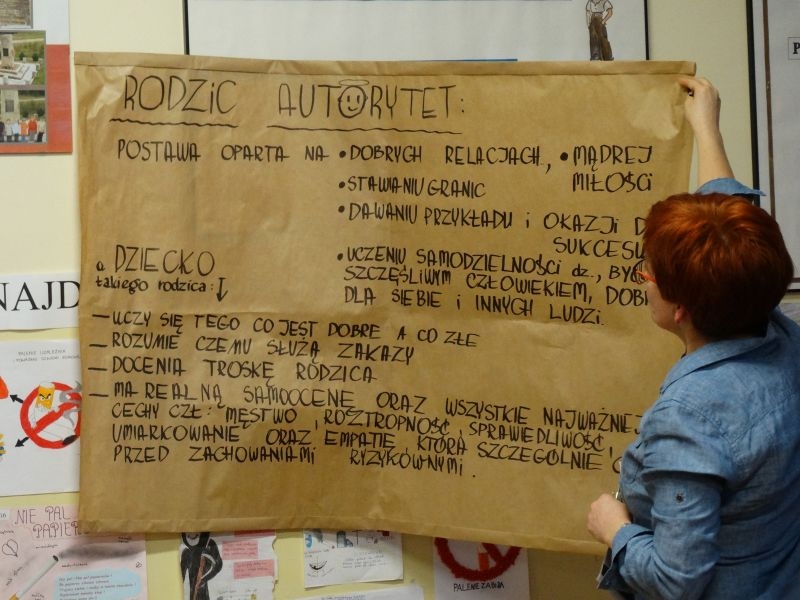 RODZIC AUTORYTET:
POSTAWA OPARTA NA • DOBRYCH RELACJACH, • MĄDREJ
MIŁOŚCI
• STAWANIU GRANIC
• DAWANIU PRZYKŁADU i OKAZJI D
SUKCESU
• UCZENIU SAMODZIELNOŚCI dz., BYC
SZCZĘŚLIWYM CZŁOWIEKIEM, DOBR
DLA SIEBIE i INNYCH LUDZI.
a DZIECKO
takiego rodzica:
— UCZY SIĘ TEGO CO JEST DOBRE A CO ZŁE
— ROZUMIE CZEMU SŁUŻĄ ZAKAZY
— DOCENIA TROSKĘ RODZICA
— MA REALNĄ SAMOOCENĘ ORAZ WSZYSTKIE NAJWAŻNIEJ
CECHY CZŁ: MĘSTWO, ROZTROPNOŚĆ, SPRAWIEDLIWOŚĆ,
UMIARKOWANIE ORAZ EMPATIĘ, KTÓRA SZCZEGÓLNIE
PRZED ZACHOWANIAMI RYZYKOWNYMI.
NAJD
NIE PAL
PAPIER
PALENIE ZABIJA